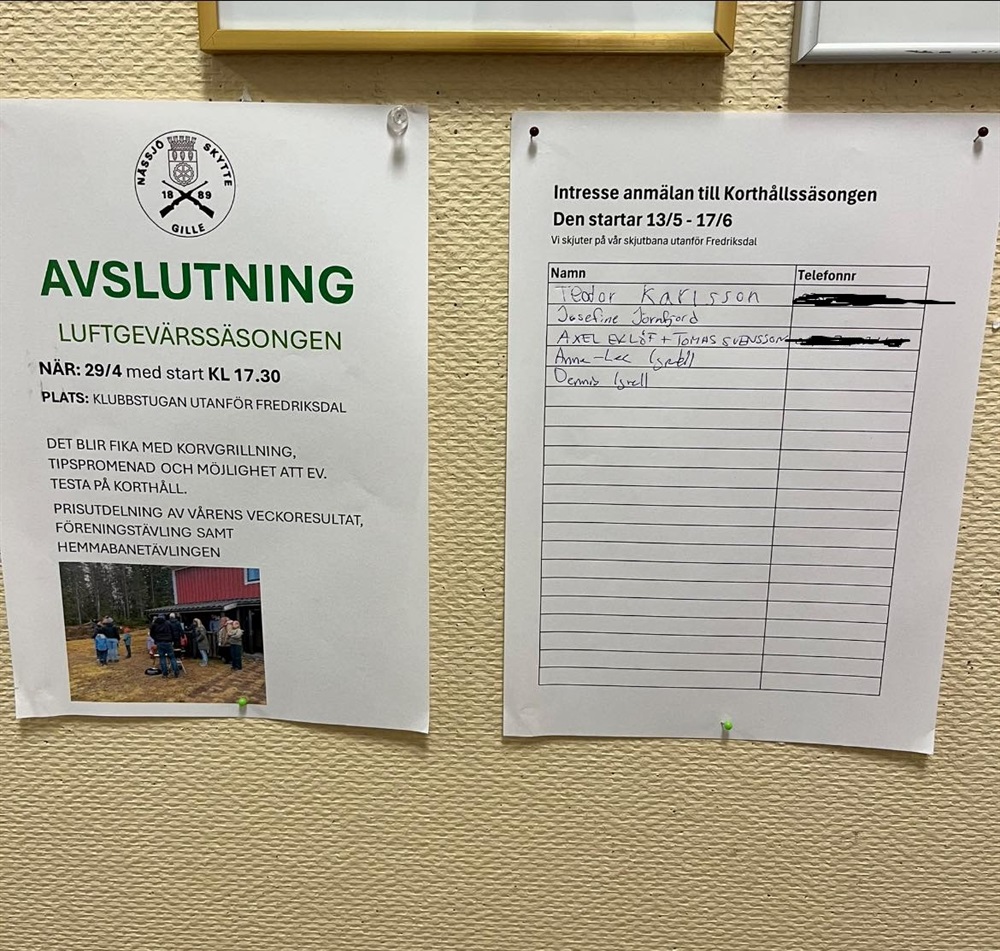 NÄSSJÖ SKYTTE
18 89
GILLE
AVSLUTNING
LUFTGEVÄRSSÄSONGEN
NÄR: 29/4 med start KL 17.30
PLATS: KLUBBSTUGAN UTANFÖR FREDRIKSDAL
DET BLIR FIKA MED KORVGRILLNING,
TIPSPROMENAD OCH MÖJLIGHET ATT EV.
TESTA PÅ KORTHÅLL.
PRISUTDELNING AV VÅRENS VECKORESULTAT,
FÖRENINGSTÄVLING SAMT
HEMMABANETÄVLINGEN
Intresse anmälan till Korthållssäsongen
Den startar 13/5 - 17/6
Vi skjuter på vår skjutbana utanför Fredriksdal
Namn Telefonnr
Teodor Karlsson
Josefine Jornfjord
AXEL EKLÖF + TOMAS SVENSSON
Anna-Lee
Dennis